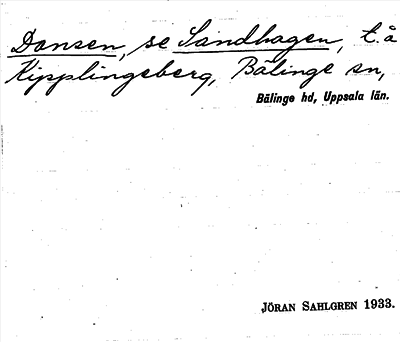 Dansen, se Sandhagen, t.å
Kipplingeberg, Bälinge sn,
Bälinge hd, Uppsala län.
JÖRAN SAHLGREN 1933.